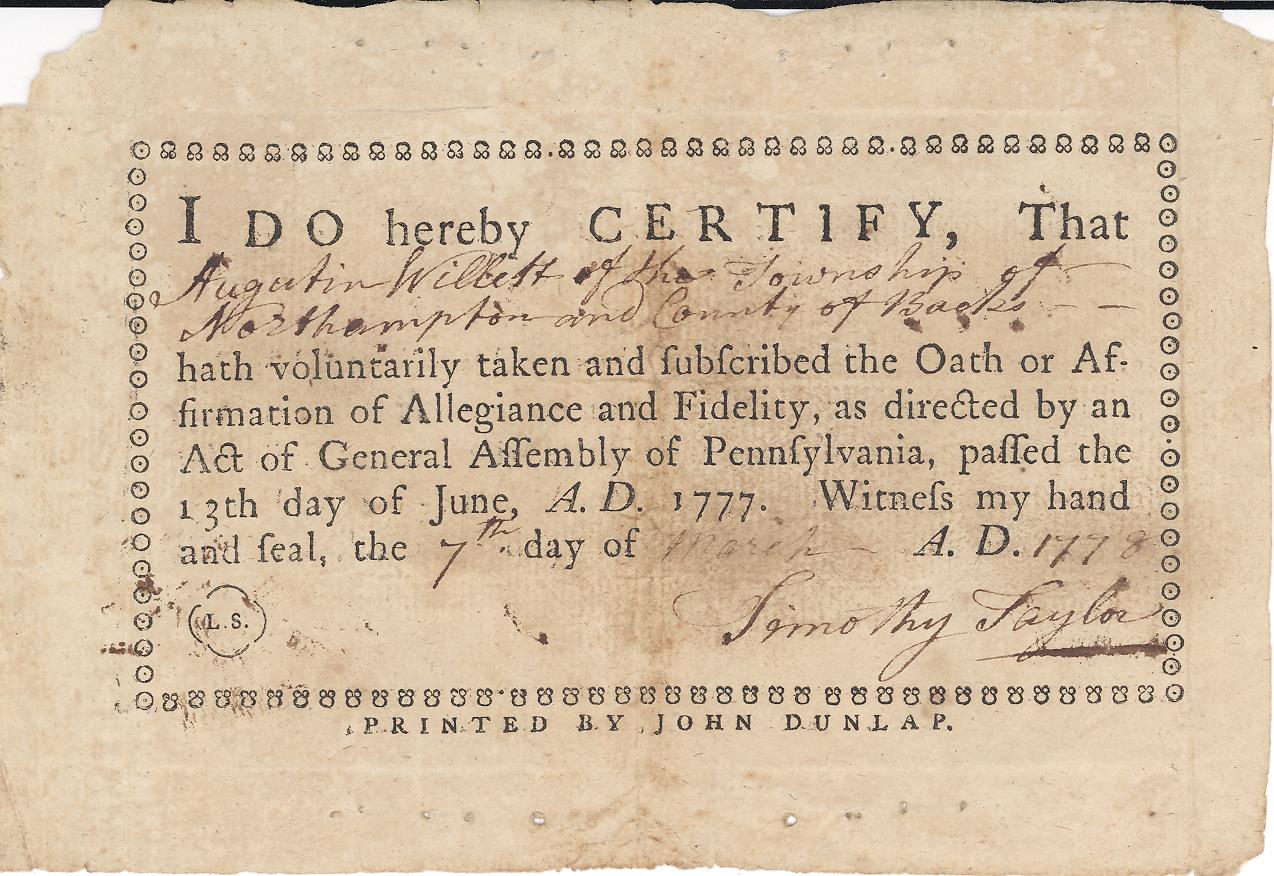 I DO hereby CERTIFY, That
Augustin Willett of the Township of
Northampton and County of Bucks
hath voluntarily taken and ſubſcribed the Oath or Af-
firmation of Allegiance and Fidelity, as directed by an
Act of General Aſſembly of Pennſylvania, paſſed the
13th day of June, A. D. 1777. Witneſs my hand
and ſeal, the 7th day of March A. D. 1778
L. S.
Timothy Taylor
PRINTED BY JOHN DUNLAP.